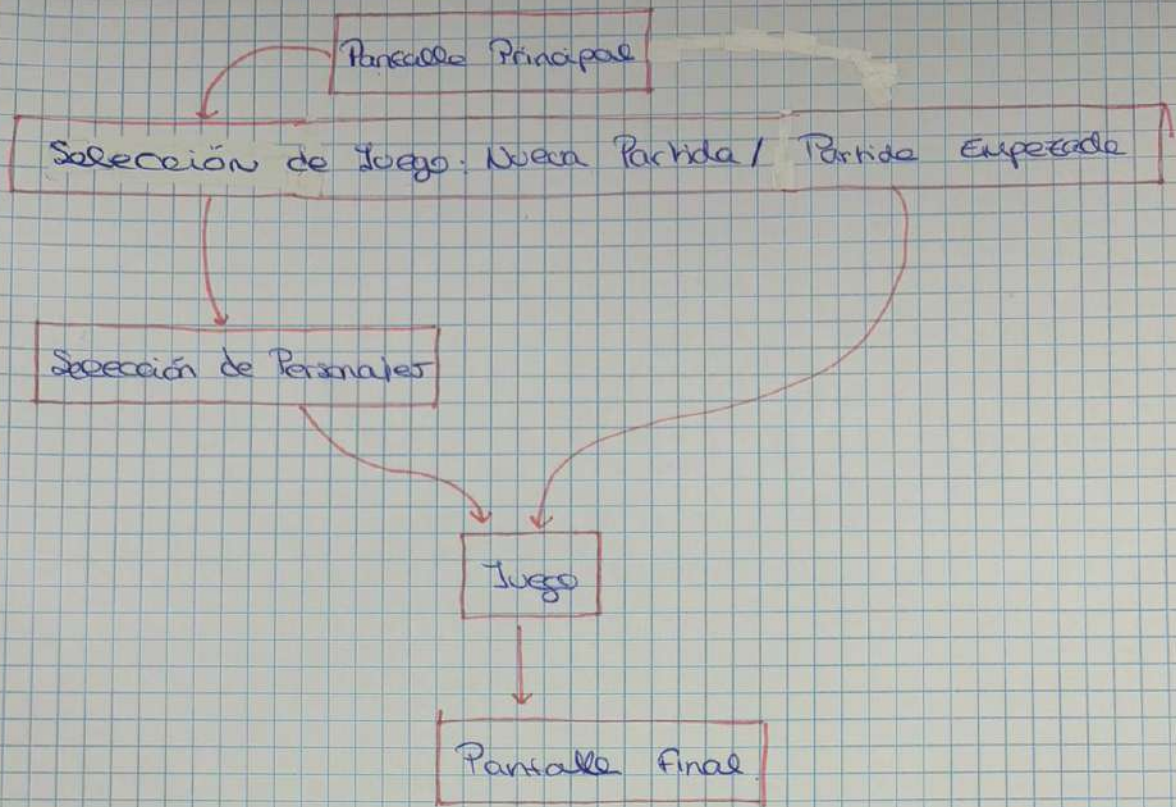 Pantalla Principal
Selección de Juego: Nueva Partida / Partida Empezada
Selección de Personajes
Juego
Pantalla Final